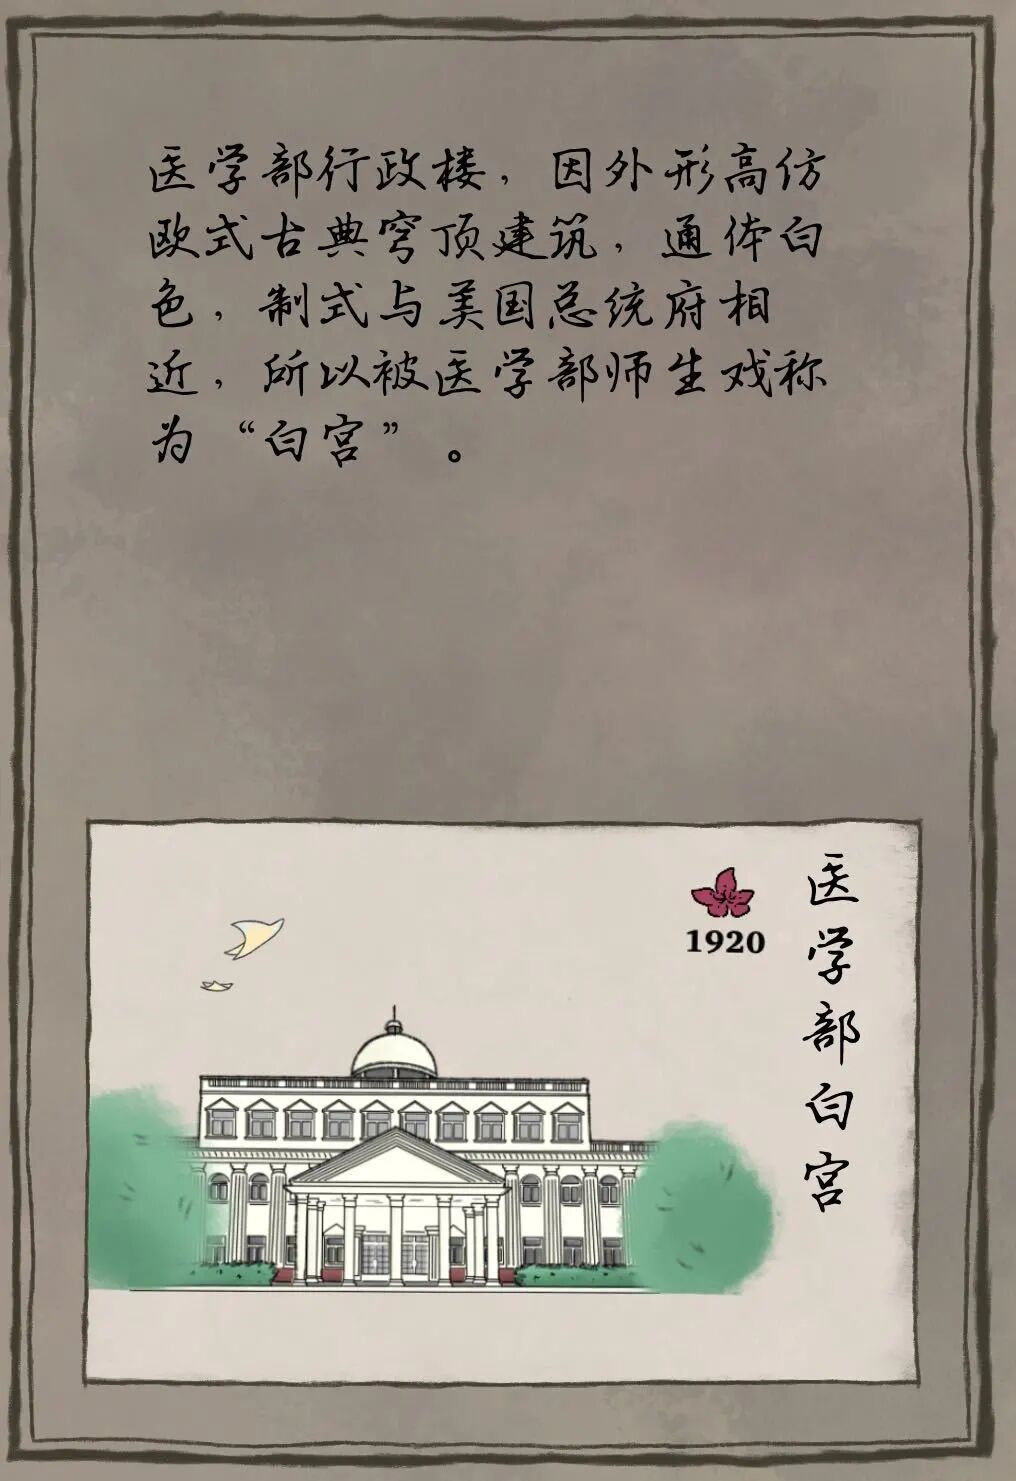 医学部行政楼，因外形高仿
欧式古典穹顶建筑，通体白
色，制式与美国总统府相
近，所以被医学部师生戏称
为“白宫”。
1920
医学部白宫